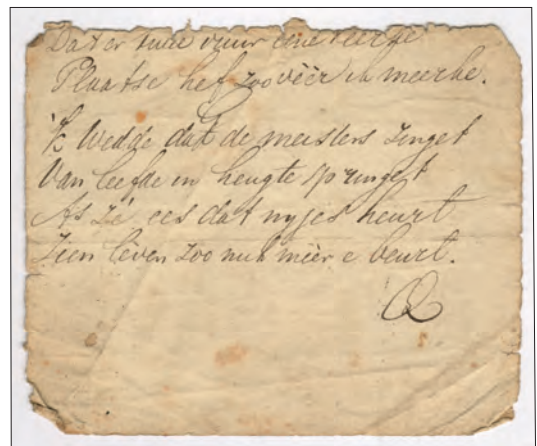 Dat er twie vuur eine keerke
Plaatse hef zoo vèèr ik meerke.
'k Wedde dat de meisters zinget
Van leefde en heugte springet
As zé ees dat nyjes heurt
Zien lêven zoo nuh mèèr e beurt.